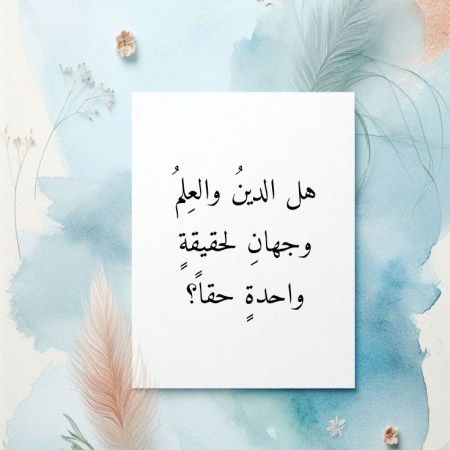 هل الدينُ والعِلمُ
وجهانِ لحقيقةٍ
واحدةٍ حقاً؟